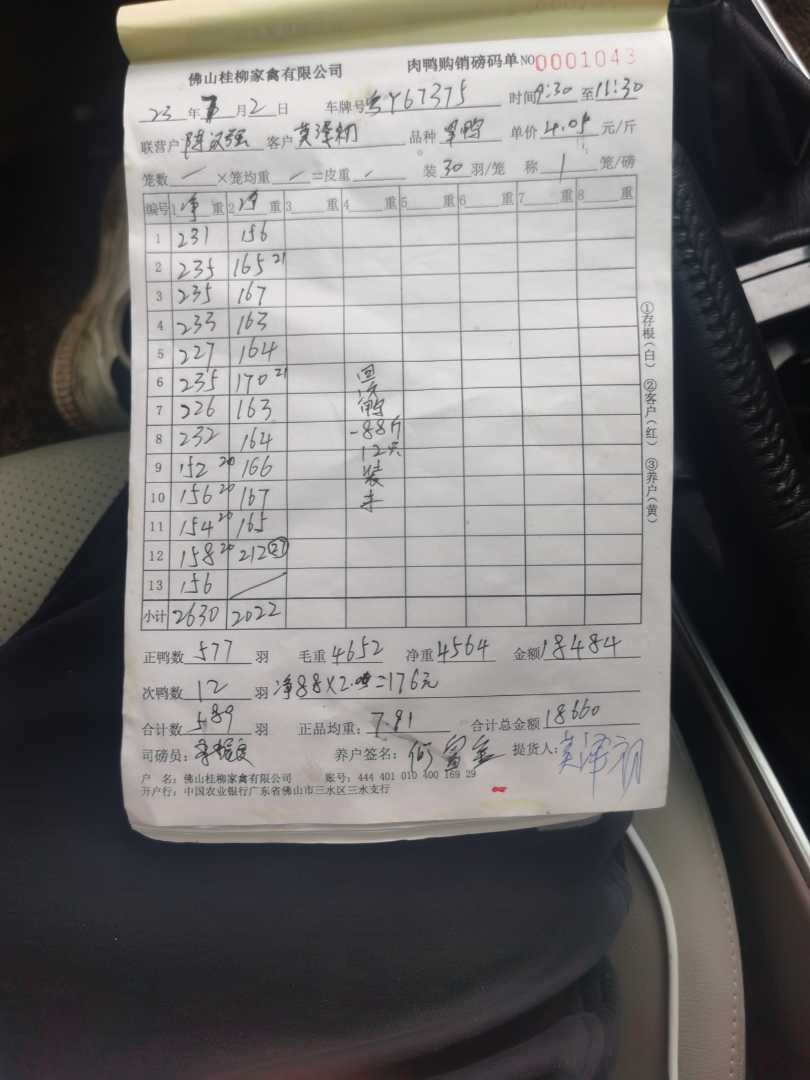 佛山桂柳家禽有限公司 肉鸭购销磅码单 NO 0001043
23年 月2日 车牌号 Y67375 时间9:30至11:30
联营户 陈汉强 客户 莫泽初 品种 单价4.05元/斤
笼数 ×笼均重 =皮重 装30羽/笼 称1笼/磅
编号 1净重 2净重 3 重 4 重 5 重 6 重 7 重 8 重
1 231 156
2 235 165 21
3 235 167
4 233 163
5 227 164
6 235 170 21
7 226 163
8 232 164
9 152 20 166
10 156 20 167
11 154 20 165
12 158 20 212 27
13 156
小计 2630 2022
回
鸭
-88斤
12只
装
①存根(白) ②客户(红) ③养户(黄)
正鸭数 577 羽 毛重 4652 净重 4564 金额 18484
次鸭数 12 羽 净88×2.00=176元
合计数 589 羽 正品均重: 7.91 合计总金额 18660
司磅员: 养户签名: 何 提货人: 莫泽初
户 名: 佛山桂柳家禽有限公司 账号: 444 401 010 400 169 29
开户行: 中国农业银行广东省佛山市三水区三水支行